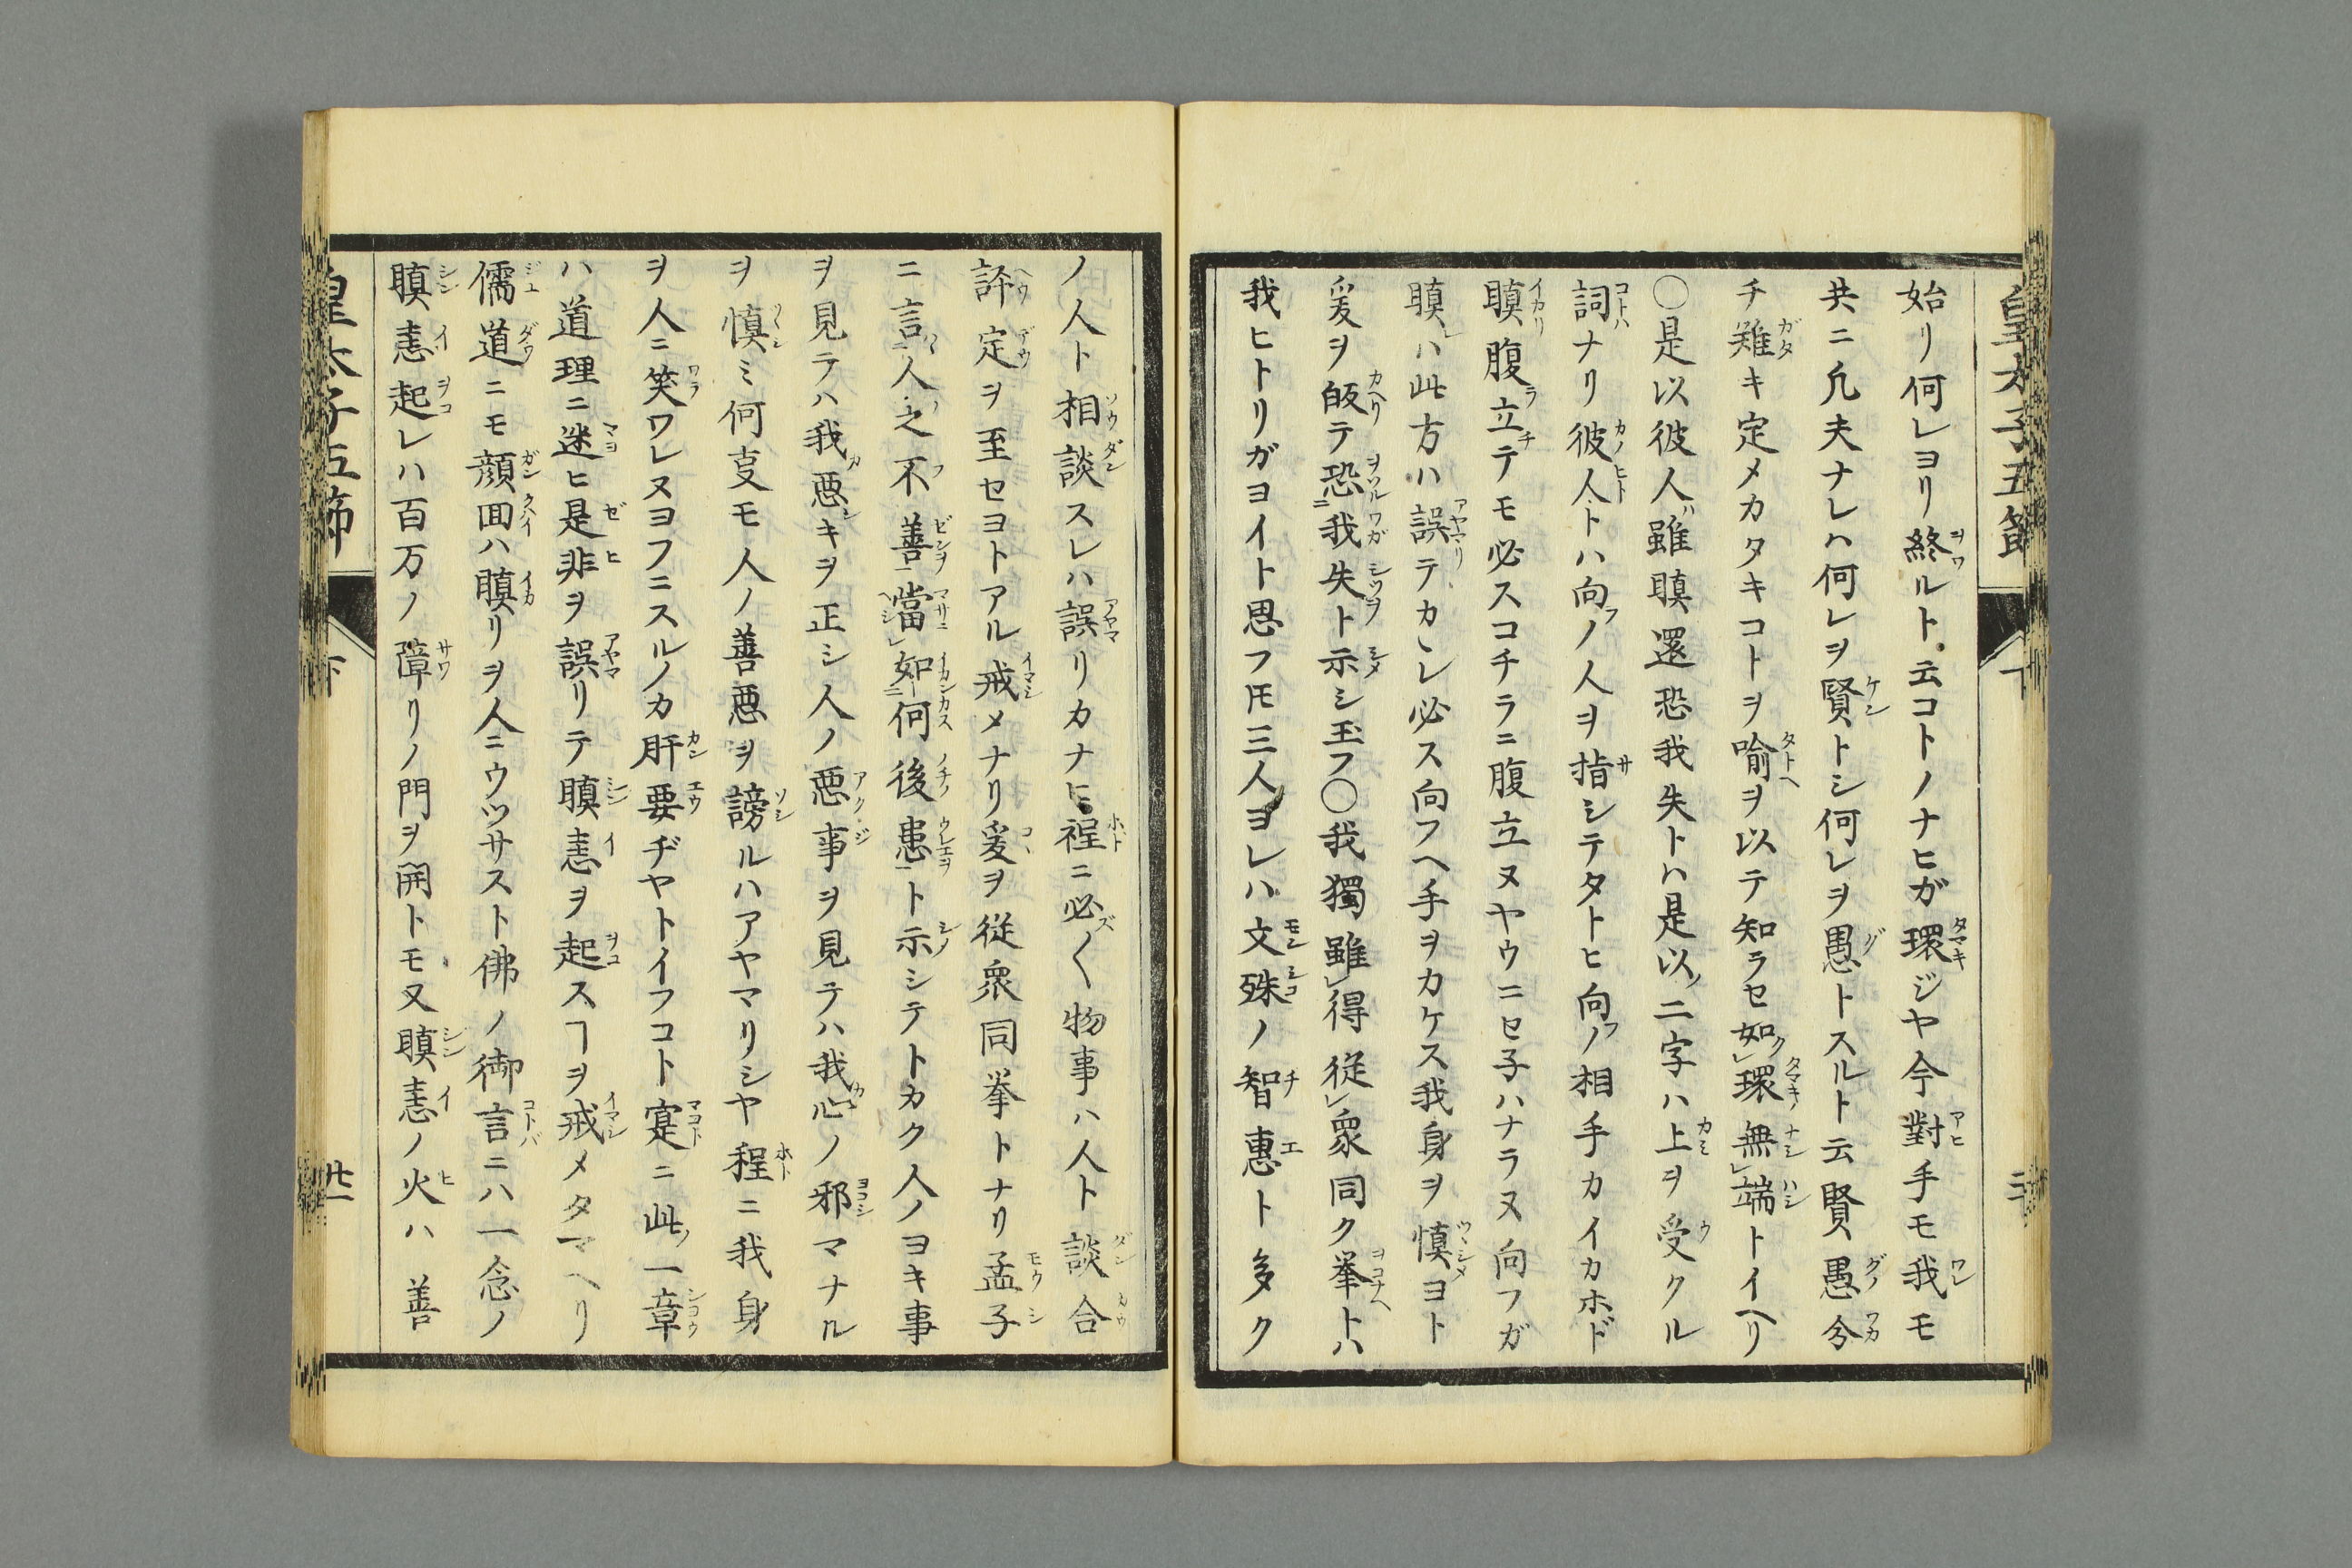 皇太子五節
下
始リ何レヨリ終ルト云コトノナヒガ環ジヤ今對手モ我モ
共ニ凢夫ナレハ何レヲ賢トシ何レヲ愚トスルト云賢愚今
チ難キ定メカタキコトヲ喻ヲ以テ知ラセ如環無端トイヘリ
〇是以彼人雖瞋還恐我失トハ是以ノ二字ハ上ヲ受クル
詞ナリ彼人トハ向フノ人ヲ指シテタトヒ向フノ相手カイカホド
瞋腹立テモ必スコチラニ腹立ヌヤウニセ子ハナラヌ向フガ
瞋レハ此方ハ誤テカヽレ必ス向フヘ手ヲカケス我身ヲ慎ヨト
爰ヲ皈テ恐我失ト示シ玉フ〇我獨雖得從衆同ク挙トハ
我ヒトリガヨイト思フ𪜈三人ヨレハ文殊ノ智惠ト多ク
ノ人ト相談スレハ誤リカナヒ程ニ必〱物事ハ人ト談合
評定ヲ至セヨトアル戒メナリ爰ヲ従衆同挙トナリ孟子
ニ言人之不善當如何後患ト示シテトカク人ノヨキ事
ヲ見テハ我悪キヲ正シ人ノ悪事ヲ見テハ我心ノ邪マナル
ヲ慎ミ何叓モ人ノ善悪ヲ謗ルハアヤマリシヤ程ニ我身
ヲ人ニ笑ワレヌヨフニスルノカ肝要ヂヤトイフコト寔ニ此ノ一章
ハ道理ニ迷ヒ是非ヲ誤リテ瞋恚ヲ起スヿヲ戒メタマヘリ
儒道ニモ顔囬ハ瞋リヲ人ニウツサスト佛ノ御言ニハ一念ノ
瞋恚起レハ百万ノ障リノ門ヲ開トモ又瞋恚ノ火ハ善
皇太子五節
下
廿一